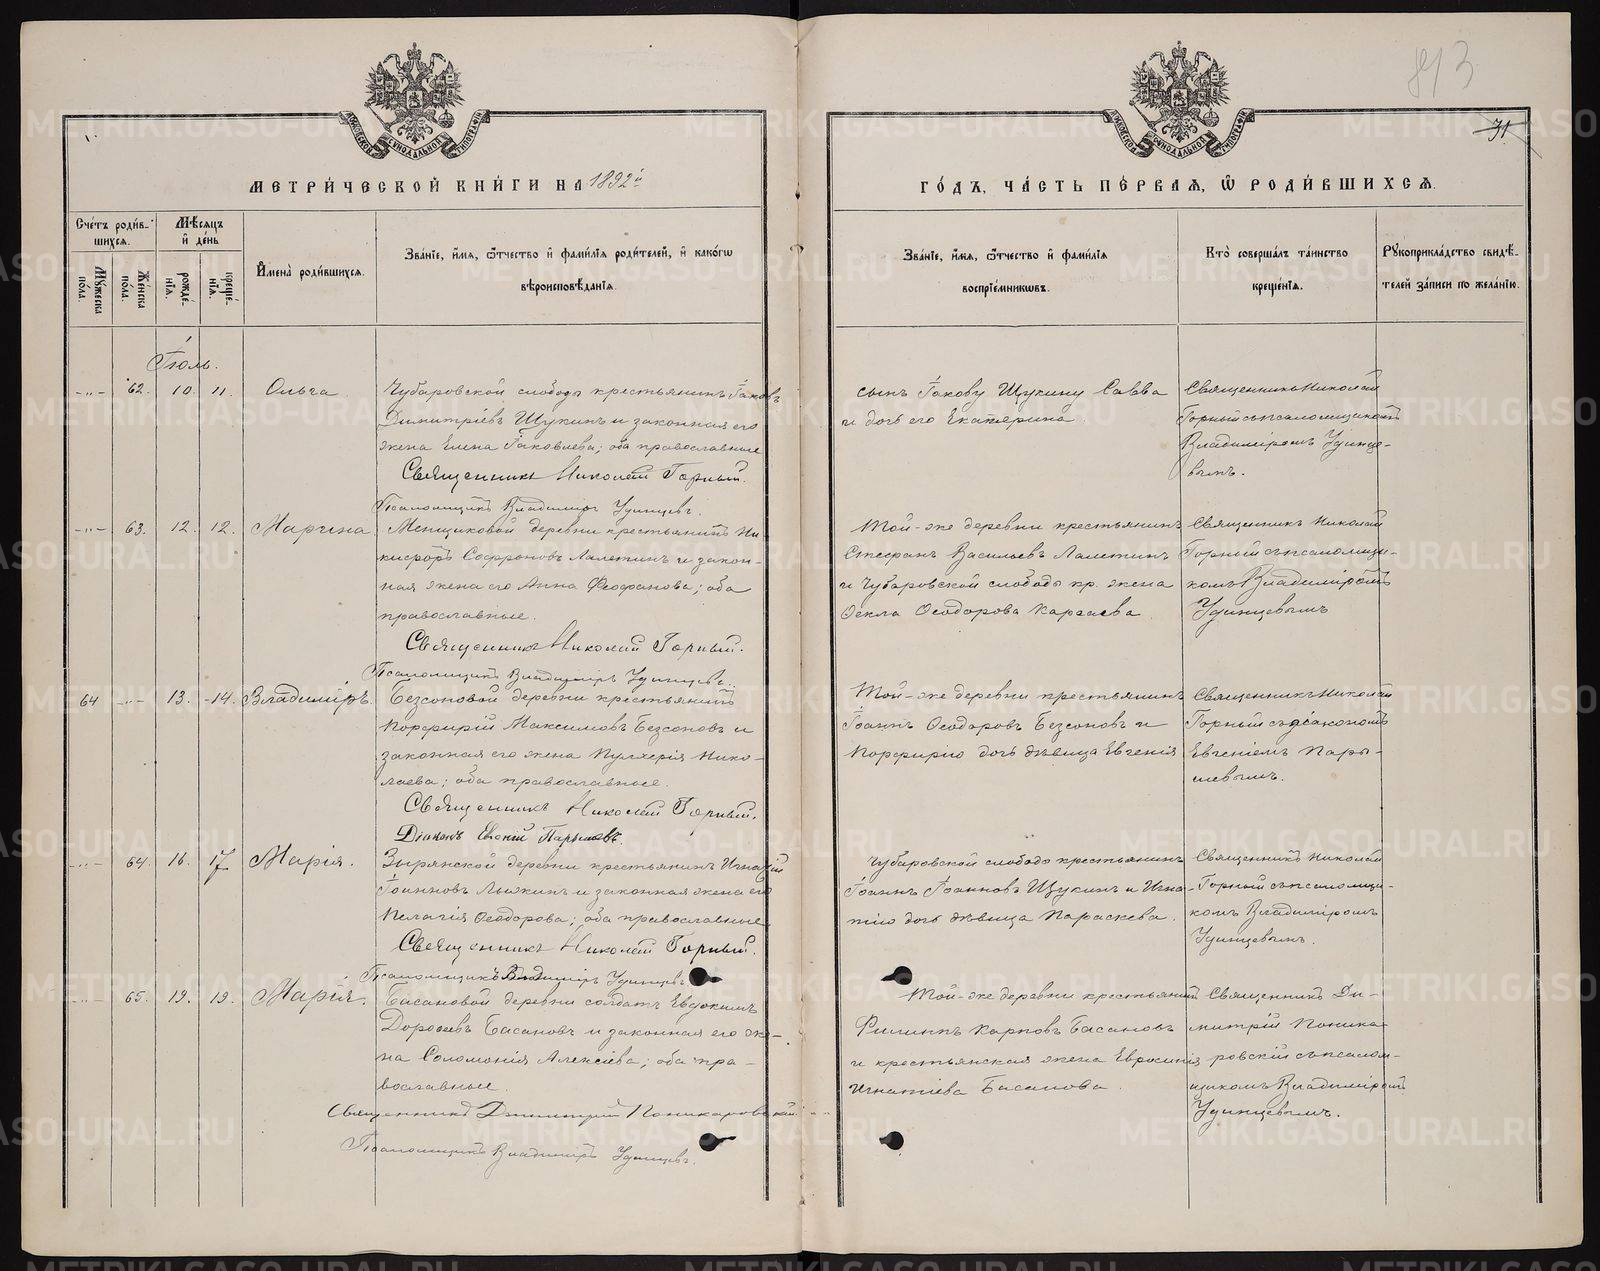 813
71
МОСКОВСКОЙ СѴНОДАЛЬНОЙ ТИПОГРАФІИ
МОСКОВСКОЙ СѴНОДАЛЬНОЙ ТИПОГРАФІИ
МЕТРИ́ЧЕСКОЙ КНИ́ГИ НА 1892й
ГО́ДЪ, ЧА́СТЬ ПЕ́РВАЯ, Ѡ҆ РОДИ́ВШИХСЯ.
Сче́тъ роди́в-
шихся.
Мꙋ́жеска по́ла.
Же́нска по́ла.
Мѣ́сяцъ
и҆ де́нь
рожде́-
нїя.
креще́-
нїя.
И҆мена̀ роди́вшихся.
Зва́нїе, и҆́мя, ѻ҆́тчество и҆ фами́лїя роди́телей, и҆ како́гѡ
вѣроисповѣ́данїя.
Зва́нїе, и҆́мя, ѻ҆́тчество и҆ фами́лїя
воспрїе́мникѡвъ.
Кто̀ соверша́лъ та́инство
креще́нїя.
Рꙋкоприкла́дство свидѣ́-
телей за́писи по жела́нїю.
Іюль.
-„- 62. 10. 11. Ольга
Чубаровской слободы крестьянинъ Іаковъ
Димитріевъ Щукинъ и законная его
жена Елена Іаковлева; оба православные
Священникъ Николай Горный.
Псаломщикъ Владиміръ Удинцевъ.
сынъ Іакову Щукину Савва
и дочь его Екатерина.
Священникъ Николай
Горный съ псаломщикомъ
Владиміромъ Удинце-
вымъ.
-„- 63. 12. 12. Марина
Менщиковой деревни крестьянинъ Ни-
кифоръ Софроновъ Лалетинъ и закон-
ная жена его Анна Феофанова; оба
православные.
Священникъ Николай Горный.
Псаломщикъ Владиміръ Удинцевъ.
Той-же деревни крестьянинъ
Стефанъ Васильевъ Лалетинъ
и Чубаровской слободы кр. жена
Ѳекла Ѳеодорова Каргаева.
Священникъ Николай
Горный съ псаломщи-
комъ Владиміромъ
Удинцевымъ
64 -„- 13. 14. Владиміръ.
Безсоновой деревни крестьянинъ
Порфирій Максимовъ Безсоновъ и
законная его жена Пулхерія Нико-
лаева; оба православные.
Священникъ Николай Горный.
Діаконъ Евгеній Парышевъ.
Той-же деревни крестьянинъ
Іоаннъ Ѳеодоровъ Безсоновъ и
Порфирію дочь дѣвица Евгенія
Священникъ Николай
Горный съ діакономъ
Евгеніемъ Пары-
шевымъ.
-„- 64. 16. 17 Марія.
Зырянской деревни крестьянинъ Игнатій
Іоанновъ Лыжинъ и законная жена его
Пелагія Ѳеодорова; оба православные
Священникъ Николай Горный.
Псаломщикъ Владиміръ Удинцевъ
Чубаровской слободы крестьянинъ
Іоаннъ Іоанновъ Щукинъ и Игна-
тію дочь дѣвица Параскева.
Священникъ Николай
Горный съ псаломщи-
комъ Владиміромъ
Удинцевымъ.
-„- 65. 19. 19. Марія.
Басановой деревни солдатъ Евдокимъ
Дороѳеевъ Басановъ и законная его же-
на Соломонія Алексіева; оба пра-
вославные.
Священникъ Димитрій Поникаровскій
Псаломщикъ Владиміръ Удинцевъ.
Той-же деревни крестьянинъ
Филиппъ Карповъ Басановъ
и крестьянская жена Евфросинія
Игнатіева Басанова.
Священникъ Ди-
митрій Поника-
ровскій съ псалом-
щикомъ Владиміромъ
Удинцевымъ.
METRIKI.GASO-URAL.RU